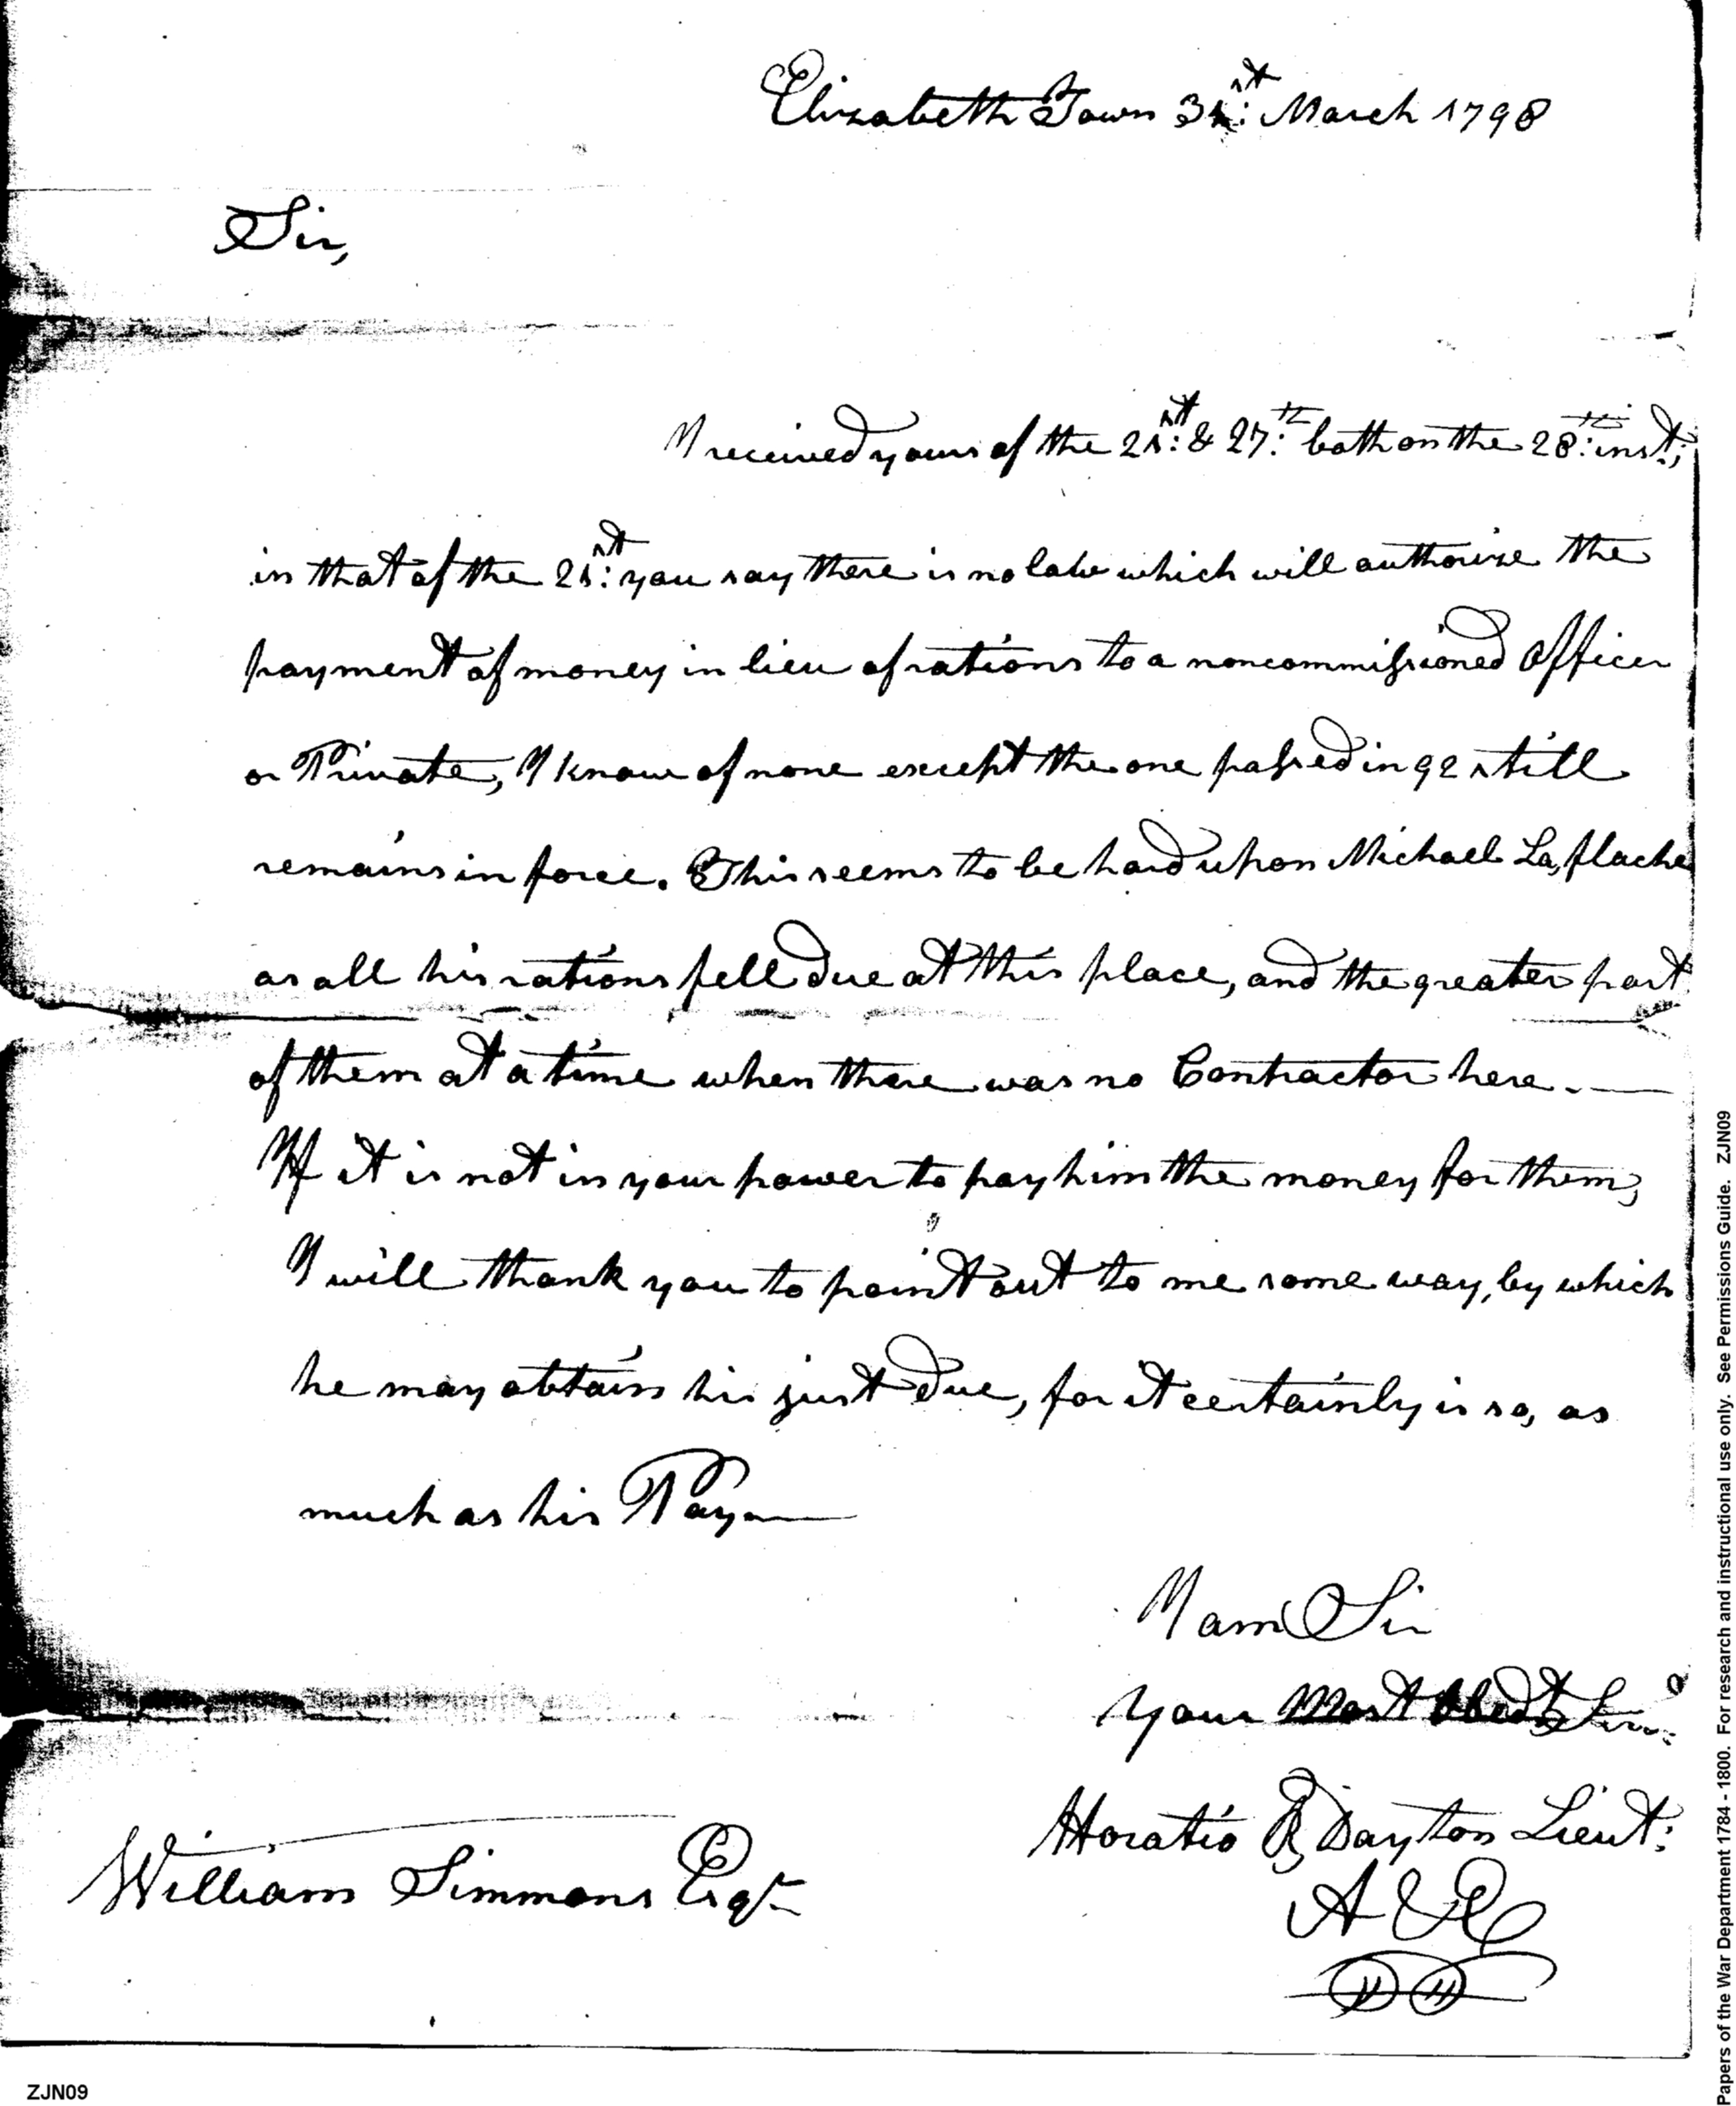 Elizabeth Town 31st: March 1798
Sir,
I received yours of the 21st: & 27th: both on the 28th: inst;
in that of the 21st: you say there is no law which will authorize the
payment of money in lieu of rations to a noncommissioned Officer
or Private, I know of none except the one passed in 92 still
remains in force. This seems to be hard upon Michael La,flache
as all his rations fell due at this place, and the greater part
of them at a time when there was no Contractor here. —
If it is not in your power to pay him the money for them,
I will thank you to point out to me some way, by which
he may obtain his just due, for it certainly is so, as
much as his Pay —
I am Sir
Your Most Obedt Serv:
Horatio R Dayton Lieut:
A & E
William Simmons Esqr
ZJN09
Papers of the War Department 1784 - 1800. For research and instructional use only. See Permissions Guide. ZJN09